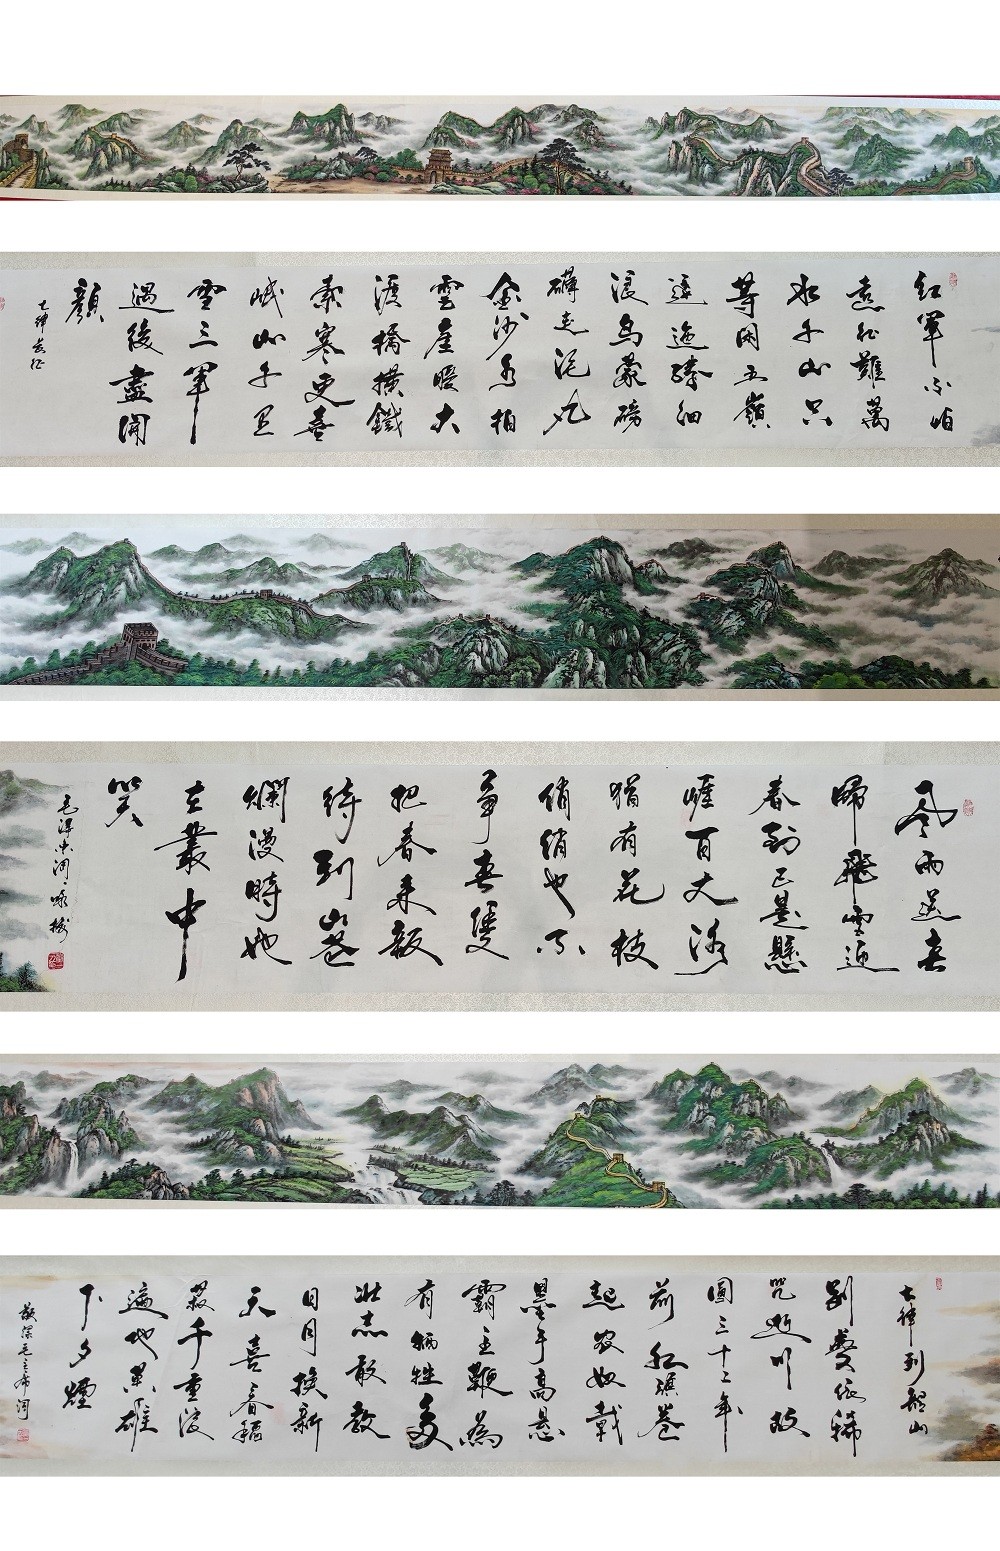 红軍不怕
遠征難萬
水千山只
等闲五嶺
逶迤騰细
浪乌蒙磅
礴走泥丸
金沙水拍
雲崖暖大
渡橋横鐵
索寒更喜
岷山千里
雪三軍
過後盡開
顔
七律长征
风雨送春
歸飛雪迎
春到已是懸
崖百丈冰
猶有花枝
俏俏也不
爭春隻
把春来報
待到山花
爛漫時她
在叢中
笑
毛泽东词咏梅
七律到韶山
别夢依稀
咒逝川故
園三十二年
前红旗卷
起农奴戟
黑手高悬
霸主鞭為
有牺牲多
壮志敢教
日月换新
天喜看稻
菽千重浪
遍地英雄
下夕煙
毛主席词